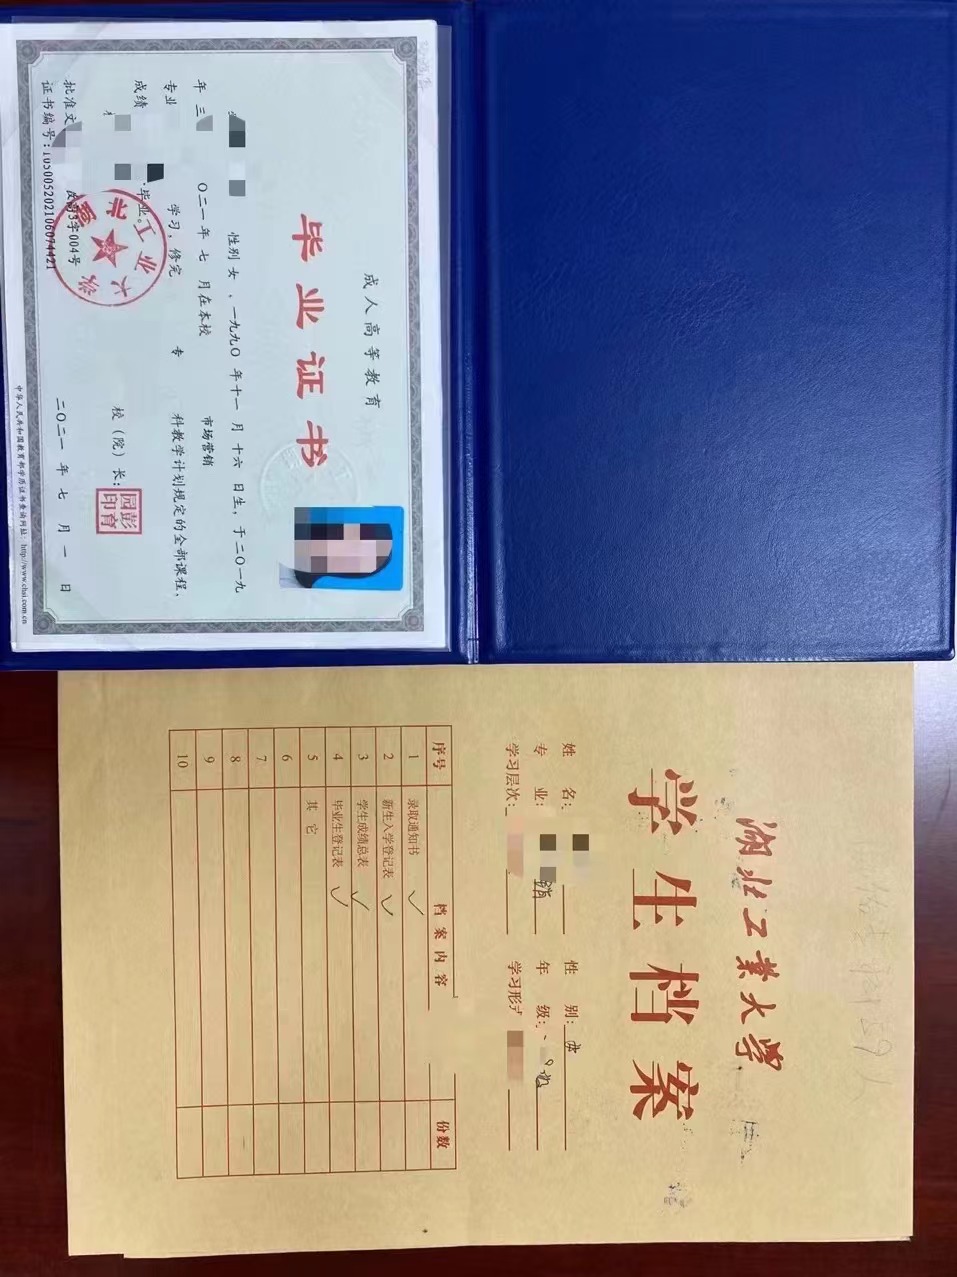 成人高等教育
毕业证书
性别 女 ，一九九〇 年 十一 月 十六 日生，于二〇一九
年 三 〇二一 年 七 月在本校 市场营销
专业 学习，修完 专 科教学计划规定的全部课程，
成绩 毕业。
湖北工业大学
校（院）长：
彭育园印
批准文 改高3字004号
二〇二一 年 七 月 一 日
证书编号：105005202106074421
中华人民共和国教育部学历证书查询网址：http://www.chsi.com.cn
59人
湖北工业大学
学生档案
姓 名： 性 别：女
专 业： 销 年 级： 9级
学习层次： 学习形式
序号 档案内容 份数
1 录取通知书 ✓
2 新生入学登记表 ✓
3 学生成绩总表 ✓
4 毕业生登记表 ✓
5 其 它
6
7
8
9
10